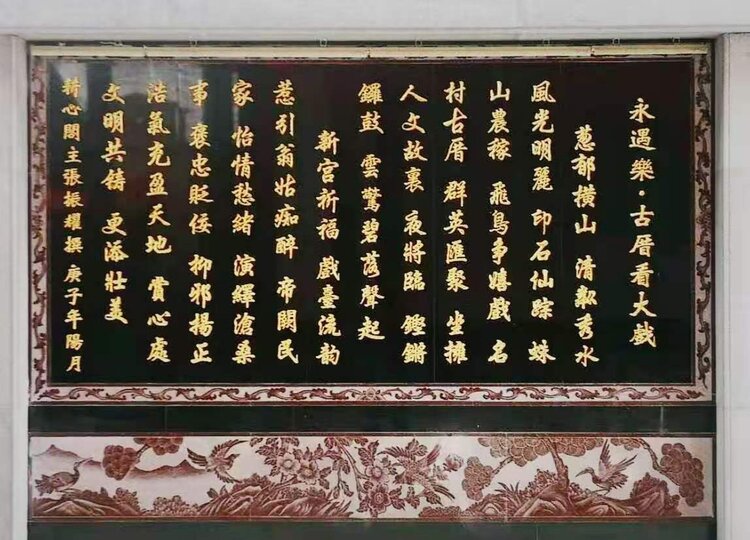 永遇樂·古厝看大戲
葱郁橫山 清歌秀水
風光明麗 印石仙踪 蛛
山農稼 飛鳥争嬉戲 名
村古厝 群英匯聚 坐擁
人文故裏 夜將臨 鏗鏘
鑼鼓 雲驚碧落聲起
新宫祈福 戲臺流韵
惹引翁姑痴醉 帝闕民
家 怡情愁緒 演繹滄桑
事 褒忠貶佞 抑邪揚正
浩氣充盈天地 賞心處
文明共铸 更添壯美
耕心閣主張振耀撰 庚子年陽月